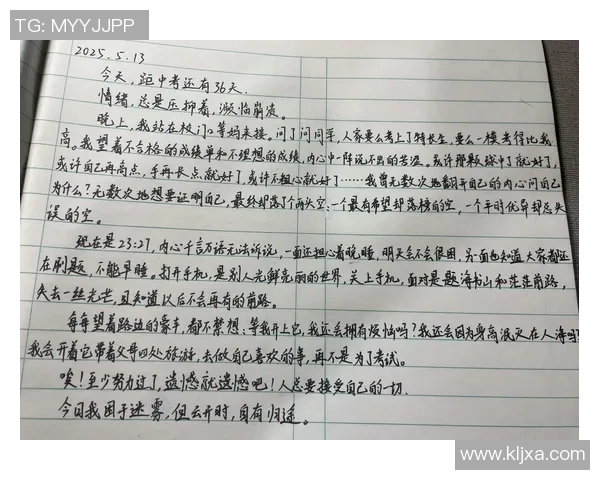 TG: MYYJJPP
2025.5.13
今天，距中考还有36天.
情绪，总是压抑着，濒临崩溃。
晚上，我站在校门口等妈来接。问了问同学，人家要么考上了特长生，要么一模考得比我
高。我望着不合格的成绩单和不理想的成绩，内心中一阵说不出的苦涩。或许那颗球中了就好了，
或许自己再高点，手再长点就好了，或许不粗心就好了……我曾无数次地翻开自己的内心问自己
为什么？无数次地想要证明自己，最终却落了个两头空：一个最有希望却落榜的空，一个平时优异却总失
误的空。
现在是23:27，内心千言万语无法诉说，一面还担心着晚睡，明天会不会很困，另一面也知道大家都还
在刷题，不能早睡。打开手机，是别人光鲜亮丽的世界，关上手机，面对是题海书山和茫茫前路，
失去一丝光芒，且知道以后不会再有的前路。
每每望着路边的豪车，都不禁想：等我开上它，我还会拥有烦恼吗？我还会因为身高泯灭在人海吗？
我会开着它带着父母四处旅游，去做自己喜欢的事，再不是为了考试。
唉！至少努力过了，遗憾就遗憾吧！人总要接受自己的一切.
今日我困于迷雾，但云开时，自有归途。
www.kljxa.com